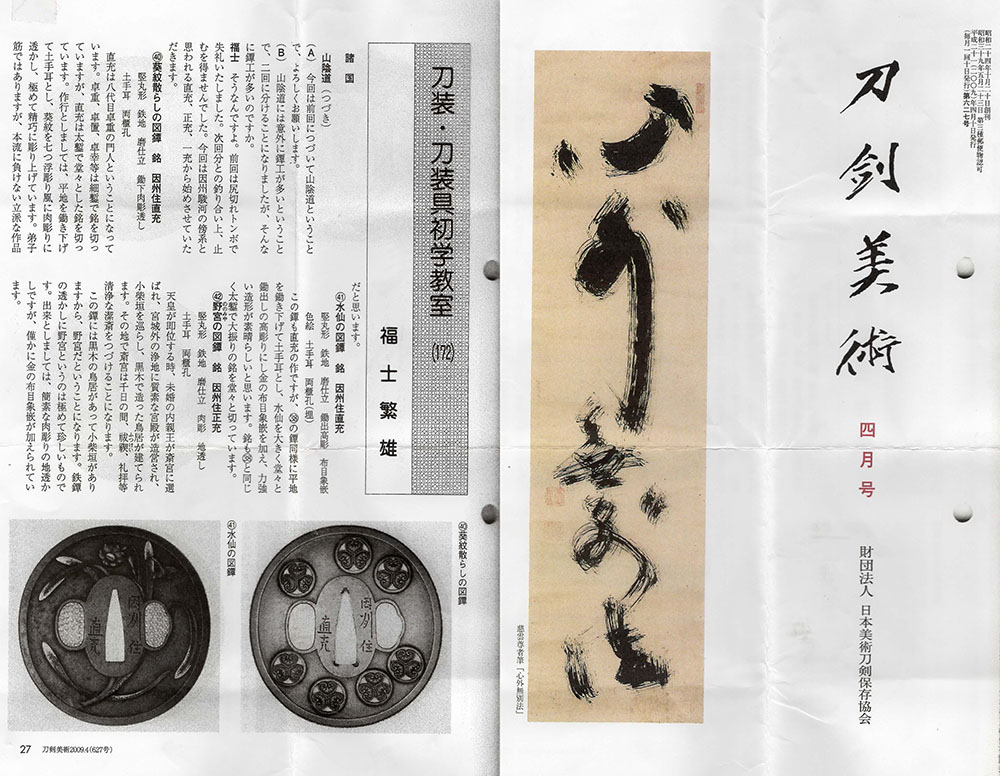 昭和二十四年十月二十日創刊
昭和三十九年五月二十三日 第三種郵便物認可
平成二十一(二〇〇九)年四月十日発行
(毎月一回十日発行)第六二七号
刀剣美術
四月号
財団法人 日本美術刀剣保存協会
心外無別法
慈雲尊者筆「心外無別法」
刀装・刀装具初学教室 (172)
福士繁雄
諸国
山陰道(つづき)
(A) 今回は前回につづいて山陰道ということ
で、よろしくお願いします。
(B) 山陰道には意外に鐔工が多いということ
で、二回に分けることになりましたが、そんな
に鐔工が多いのですか。
福士 そうなんですよ。前回は尻切れトンボで
失礼いたしました。次回分との釣り合い上、止
むを得ませんでした。今回は因州駿河の傍系と
思われる直充、正充、一充から始めさせていた
だきます。
㊵葵紋散らしの図鐔 銘 因州住直充
竪丸形 鉄地 磨仕立 鋤下肉彫透し
土手耳 両櫃孔
直充は八代目卓重の門人ということになって
います。卓重、卓置、卓幸等は細鏨で銘を切っ
ていますが、直充は太鏨で堂々とした銘を切っ
ています。作行としましては、平地を鋤き下げ
て土手耳とし、葵紋を七つ浮彫り風に肉彫りに
透かし、極めて精巧に彫り上げています。弟子
筋ではありますが、本流に負けない立派な作品
だと思います。
㊶水仙の図鐔 銘 因州住直充
竪丸形 鉄地 磨仕立 鋤出高彫 布目象嵌
色絵 土手耳 両櫃孔(埋)
この鐔も直充の作ですが、㊳の鐔同様に平地
を鋤き下げて土手耳とし、水仙を大きく堂々と
鋤出しの高彫りにし金の布目象嵌を加え、力強
い造形が素晴らしいと思います。銘も㊳と同じ
く太鏨で大振りの銘を堂々と切っています。
㊷野宮の図鐔 銘 因州住正充
竪丸形 鉄地 磨仕立 肉彫 地透し
土手耳 両櫃孔
天皇が即位する時、未婚の内親王が斎宮に選
ばれ、宮城外の浄地に質素な宮殿が造営され、
小柴垣を巡らし、黒木で造った鳥居が建てられ
ます。その地で斎宮は千日の間、祓禊、礼拝等
清浄な潔斎をつづけることになります。
この鐔には黒木の鳥居があって小柴垣があり
ますから、野宮だということになります。鉄鐔
の透かしに野宮というのは極めて珍しいもので
す。出来としましては、簡素な肉彫りの地透か
しですが、僅かに金の布目象嵌が加えられてい
ます。
㊵葵紋散らしの図鐔
因州住
直充
㊶水仙の図鐔
因州住
直充
27 刀剣美術2009.4(627号)